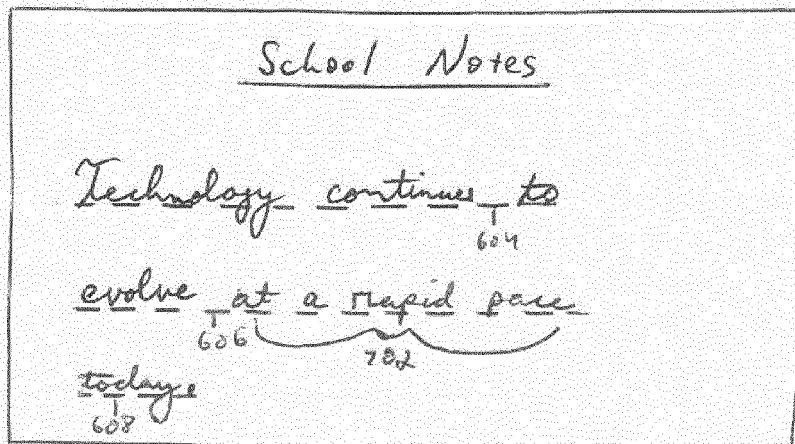 School Notes
Technology continues to
604
evolve at a rapid pace
606
702
today.
608